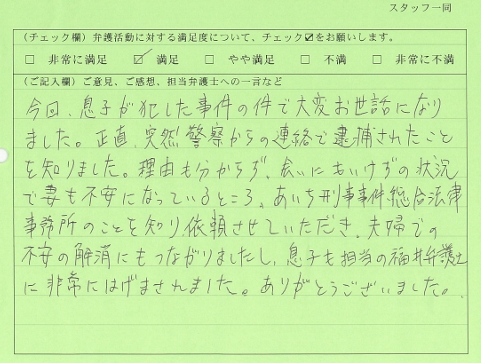 スタッフ一同
(チェック欄) 弁護活動に対する満足度について、チェック☑をお願いします。
□ 非常に満足 ☑ 満足 □ やや満足 □ 不満 □ 非常に不満
(ご記入欄) ご意見、ご感想、担当弁護士への一言など
今回、息子が犯した事件の件で大変お世話になり
ました。正直、突然警察からの連絡で逮捕されたこと
を知りました。理由も分からず、会いにもいけずの状況
で妻も不安になっているところ、あいち刑事事件総合法律
事務所のことを知り依頼させていただき、夫婦での
不安の解消にもつながりましたし、息子も担当の福井弁護士
に非常にはげまされました。ありがとうございました。